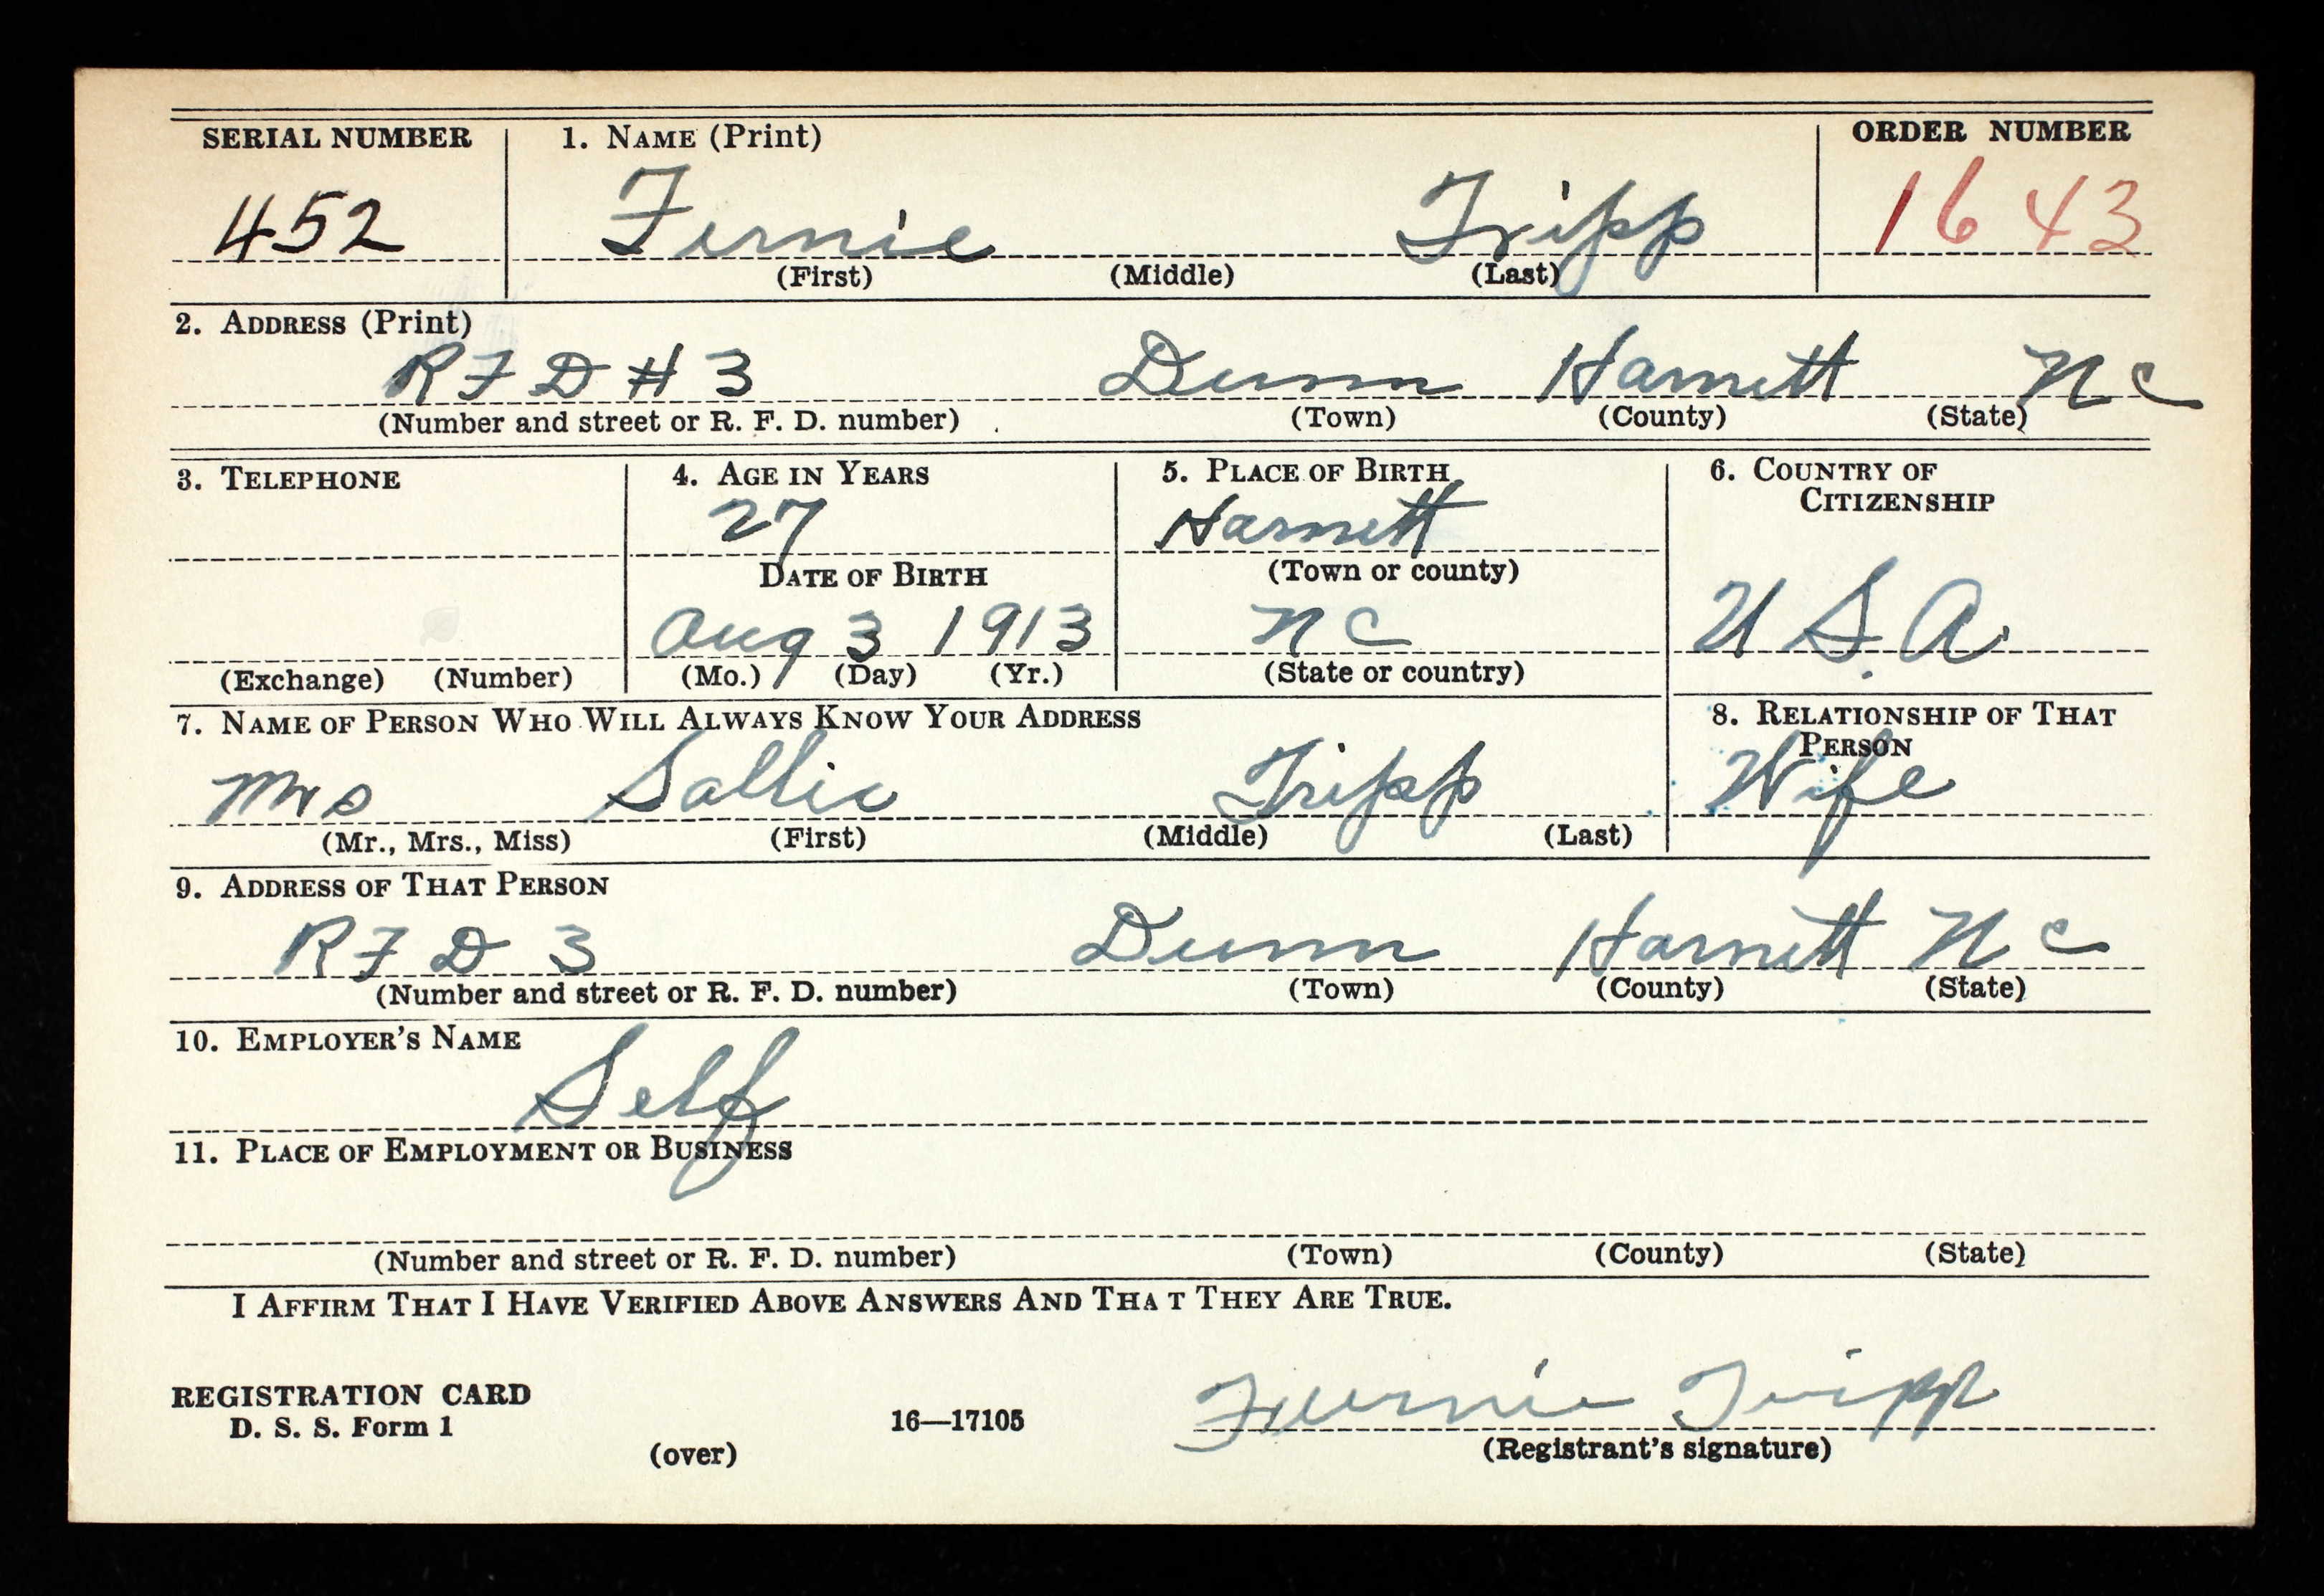 SERIAL NUMBER 1. NAME (Print) ORDER NUMBER
452 Fernie Tripp 1643
(First) (Middle) (Last)
2. ADDRESS (Print)
R F D # 3 Dunn Harnett N C
(Number and street or R. F. D. number) (Town) (County) (State)
3. TELEPHONE 4. AGE IN YEARS 5. PLACE OF BIRTH 6. COUNTRY OF
CITIZENSHIP
27 Harnett
DATE OF BIRTH (Town or county)
Aug 3 1913 N C U S A
(Exchange) (Number) (Mo.) (Day) (Yr.) (State or country)
7. NAME OF PERSON WHO WILL ALWAYS KNOW YOUR ADDRESS 8. RELATIONSHIP OF THAT
PERSON
Mrs Sallie Tripp Wife
(Mr., Mrs., Miss) (First) (Middle) (Last)
9. ADDRESS OF THAT PERSON
R F D 3 Dunn Harnett N C
(Number and street or R. F. D. number) (Town) (County) (State)
10. EMPLOYER'S NAME
Self
11. PLACE OF EMPLOYMENT OR BUSINESS
(Number and street or R. F. D. number) (Town) (County) (State)
I AFFIRM THAT I HAVE VERIFIED ABOVE ANSWERS AND THA T THEY ARE TRUE.
REGISTRATION CARD
D. S. S. Form 1 16—17105 Furnie Tripp
(over) (Registrant's signature)